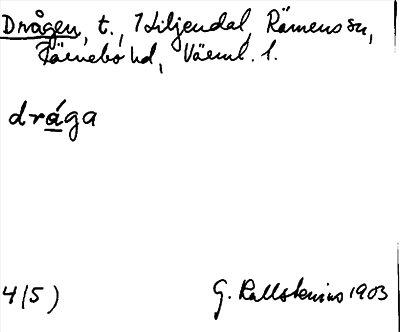 Drågen, t., 1 Liljendal, Rämens sn,
Färnebo hd, Värml. l.
dråga
4(5)
G. Kallstenius 1903